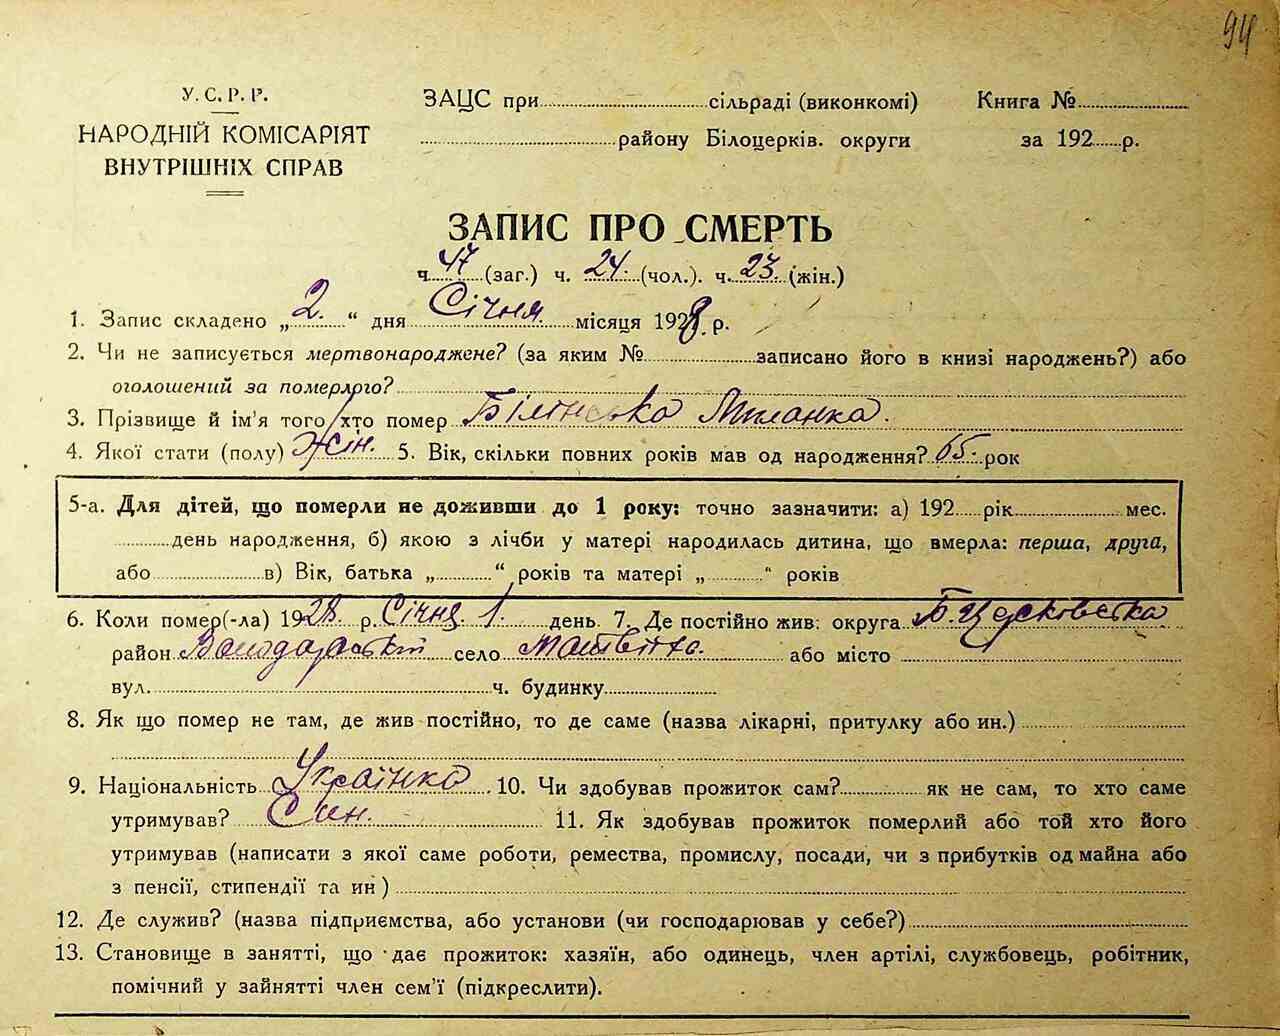 94
У. С. Р. Р.
НАРОДНІЙ КОМІСАРІЯТ
ВНУТРІШНІХ СПРАВ
ЗАЦС при сільраді (виконкомі)
району Білоцерків. округи
Книга №
за 192 р.
ЗАПИС ПРО СМЕРТЬ
ч. 47 (заг.) ч. 24. (чол.). ч. 23. (жін.)
1. Запис складено „ 2. “ дня Січня місяця 1928 р.
2. Чи не записується мертвонароджене? (за яким № записано його в книзі народжень?) або
оголошений за померлого?
3. Прізвище й ім’я того хто помер Білінська Миланка.
4. Якої стати (полу) Жін. 5. Вік, скільки повних років мав од народження? 65. рок
5-а. Для дітей, що померли не доживши до 1 року: точно зазначити: а) 192 рік мес.
день народження, б) якою з лічби у матері народилась дитина, що вмерла: перша, друга,
або в) Вік, батька „ “ років та матері „ “ років
6. Коли помер(-ла) 1928. р. Січня 1. день 7. Де постійно жив: округа Б. Церковська
район Володарський село Матвіїха. або місто
вул. ч. будинку
8. Як що помер не там, де жив постійно, то де саме (назва лікарні, притулку або ин.)
9. Національність Українка 10. Чи здобував прожиток сам? як не сам, то хто саме
утримував? Син. 11. Як здобував прожиток померлий або той хто його
утримував (написати з якої саме роботи, ремества, промислу, посади, чи з прибутків од майна або
з пенсії, стипендії та ин )
12. Де служив? (назва підприємства, або установи (чи господарював у себе?)
13. Становище в занятті, що дає прожиток: хазяїн, або одинець, член артілі, службовець, робітник,
помічний у зайнятті член сем’ї (підкреслити).